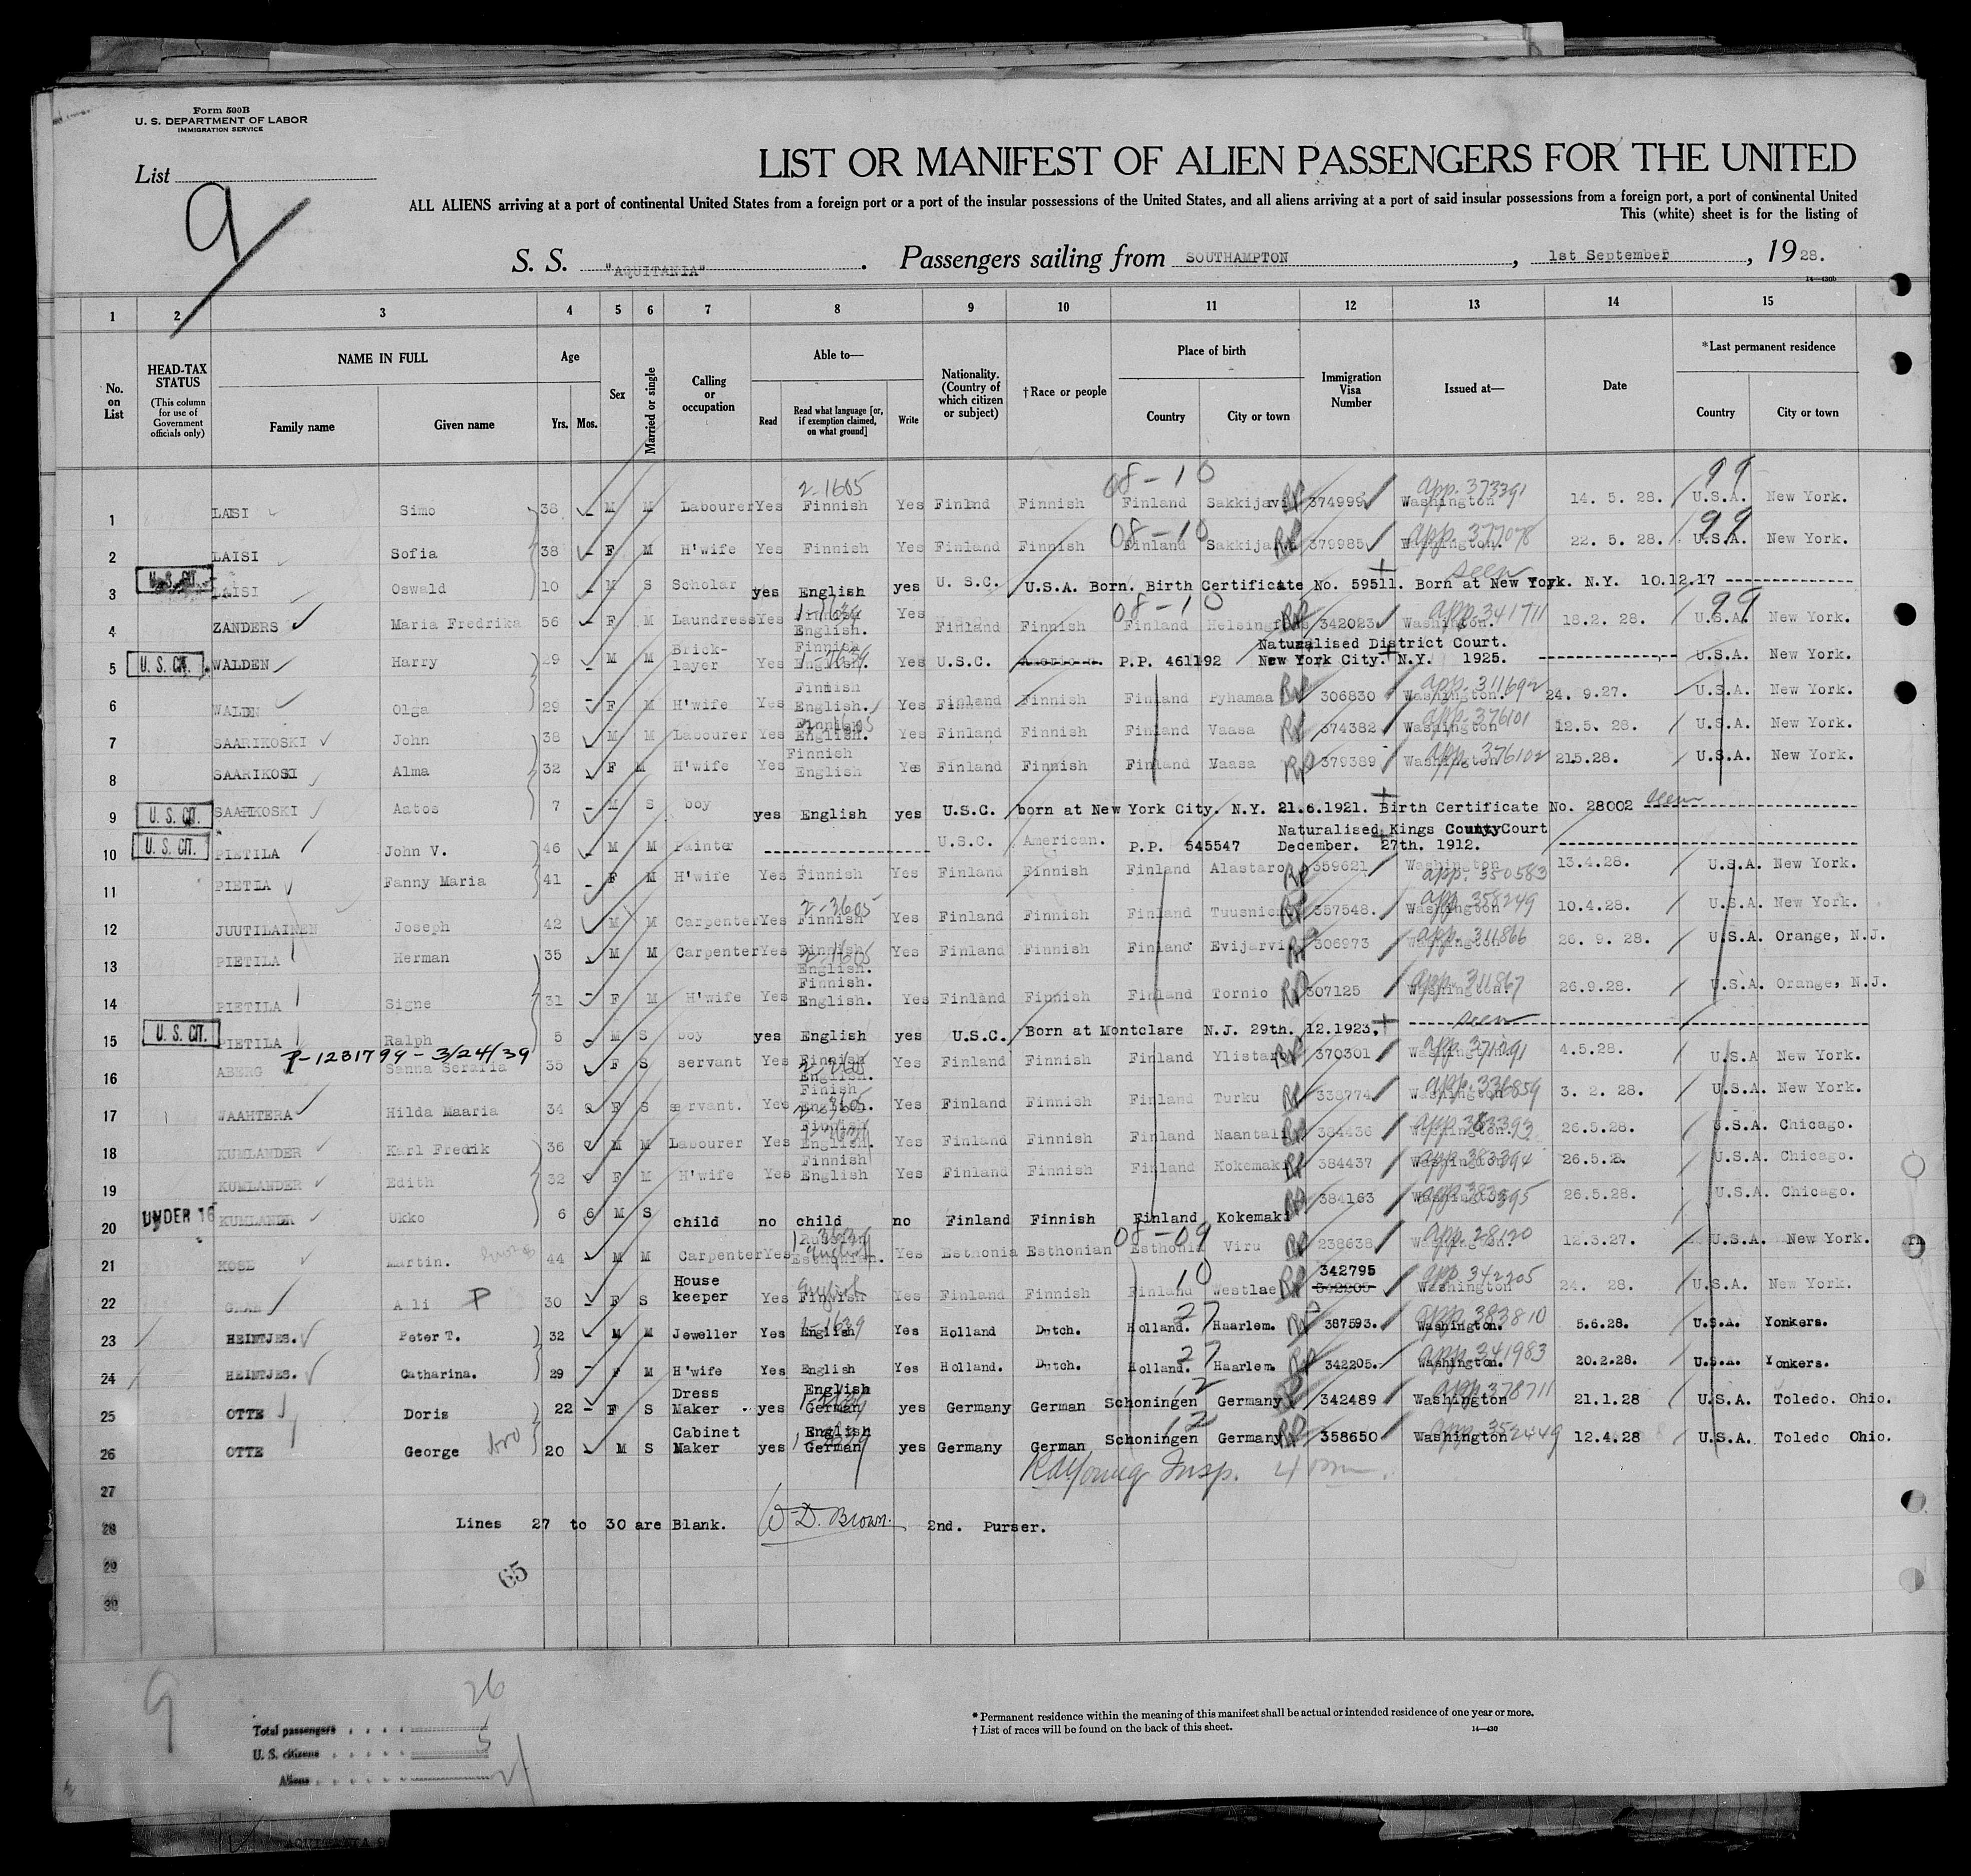 Form 500B
U. S. DEPARTMENT OF LABOR
IMMIGRATION SERVICE
List
9
LIST OR MANIFEST OF ALIEN PASSENGERS FOR THE UNITED
ALL ALIENS arriving at a port of continental United States from a foreign port or a port of the insular possessions of the United States, and all aliens arriving at a port of said insular possessions from a foreign port, a port of continental United
This (white) sheet is for the listing of
S. S. "AQUITANIA". Passengers sailing from SOUTHAMPTON, 1st September, 1928.
14—430b
1 2 3 4 5 6 7 8 9 10 11 12 13 14 15
No. on List
HEAD-TAX STATUS (This column for use of Government officials only)
NAME IN FULL Family name Given name
Age Yrs. Mos.
Sex
Married or single
Calling or occupation
Able to— Read Read what language [or, if exemption claimed, on what ground] Write
Nationality. (Country of which citizen or subject)
†Race or people
Place of birth Country City or town
Immigration Visa Number
Issued at—
Date
*Last permanent residence Country City or town
1 LAISI Simo 38 M M Labourer Yes 2-1605 Finnish Yes Finland Finnish 08-10 Finland Sakkijarvi 374999 app. 373391 Washington 14. 5. 28. 99 U.S.A. New York.
2 LAISI Sofia 38 F M H'wife Yes Finnish Yes Finland Finnish 08-10 Finland 379985 app. 377078 Washington. 22. 5. 28. 99 U.S.A. New York.
U. S. CIT. 3 LAISI Oswald 10 M S Scholar yes English yes U. S.C. U.S.A. Born. Birth Certificate No. 59511. Born at New York. N.Y. 10.12.17 seen
4 ZANDERS Maria Fredrika 56 F M Laundress Yes English. Yes Finland Finnish 08-10 Finland 342023 app. 341711 Washington. 18.2. 28. 99 U.S.A. New York.
U. S. CIT. 5 WALDEN Harry 29 M M Brick-layer Yes Finnish English. Yes U.S.C. American P.P. 461192 Naturalised District Court. New York City. N.Y. 1925. U.S.A. New York.
6 WALDEN Olga 29 F M H'wife Yes Finnish English. Yes Finland Finnish Finland Pyhamaa 306830 app. 311692 Washington. 24. 9.27. U.S.A. New York.
7 SAARIKOSKI John 38 M M Labourer Yes English. Yes Finland Finnish Finland Vaasa 374382 app. 376101 Washington 12.5. 28. U.S.A. New York.
8 SAARIKOSKI Alma 32 F M H'wife Yes Finnish English Yes Finland Finnish Finland Maasa 379389 app. 376102 Washington 215.28. U.S.A. New York.
U. S. CIT. 9 SAARIKOSKI Aatos 7 M S boy yes English yes U.S.C. born at New York City. N.Y. 21.6.1921. Birth Certificate No. 28002 seen
U. S. CIT. 10 PIETILA John V. 46 M M Painter U.S.C. American. P.P. 545547 Naturalised Kings County Court December. 27th. 1912.
11 PIETILA Fanny Maria 41 F M H'wife Yes Finnish Yes Finland Finnish Finland Alastaro 359621 Washington app. 380583 13.4.28. U.S.A. New York.
12 JUUTILAINEN Joseph 42 M M Carpenter Yes 2-3605 Finnish Yes Finland Finnish Finland 357548. app. 358249 Washington 10.4.28. U.S.A. New York.
13 PIETILA Herman 35 M M Carpenter Yes Finnish English. Yes Finland Finnish Finland Evijarvi 306973 app. 311866 Washington 26. 9. 28. U.S.A. Orange, N.J.
14 PIETILA Signe 31 F M H'wife Yes Finnish. English. Yes Finland Finnish Finland Tornio 307125 app. 311867 Washington. 26.9.28. U.S.A. Orange, N.J.
U. S. CIT. 15 PIETILA Ralph 5 M S boy yes English yes U.S.C. Born at Montclare N.J. 29th. 12.1923, seen
P-1231799-3/24/39
16 ABERG Sanna Serafia 35 F S servant Yes Finnish English. Yes Finland Finnish Finland Ylistaro 370301 app. 371091 Washington 4.5.28. U.S.A New York.
17 WAAHTERA Hilda Maaria 34 F S servant. Yes Finish English. Yes Finland Finnish Finland Turku 338774 app. 336859 Washington 3. 2. 28. U.S.A. New York.
18 KUMLANDER Karl Fredrik 36 M M Labourer Yes Finnish English. Yes Finland Finnish Finland Naantali 384436 app. 383393 Washington. 26.5.28. U.S.A. Chicago.
19 KUMLANDER Edith 32 F M H'wife Yes Finnish English Yes Finland Finnish Finland Kokemaki 384437 app. 383394 Washington 26.5.28. U.S.A. Chicago.
UNDER 16 20 KUMLANDER Ukko 6 6 M S child no child no Finland Finnish Finland Kokemaki 384163 app. 383395 Washington 26.5.28. U.S.A. Chicago.
21 KOSE Martin. 44 M M Carpenter Yes Russian English Esthonian. Yes Esthonia Esthonian 08-09 Esthonia Viru 238638 app. 28120 Washington. 12.3.27. U.S.A. New York.
22 P 30 F S House keeper Yes English Finnish Yes Finland Finnish 10 Finland Westlae 342795 342205 app 342205 Washington 24. 28. U.S.A. New York.
23 HEINTJES. Peter T. 32 M M Jeweller Yes English Yes Holland Dutch. 27 Holland. Haarlem. 387593. app. 383810 Washington. 5.6.28. U.S.A. Yonkers.
24 HEINTJES. Catharina. 29 F M H'wife Yes English Yes Holland. Dutch. 27 Holland. Haarlem. 342205. app. 341983 Washington. 20.2.28. U.S.A. Yonkers.
25 OTTE Doris 22 F S Dress Maker yes English German yes Germany German Schoningen 12 Germany 342489 app. 378711 Washington 21.1.28 U.S.A. Toledo. Ohio.
26 OTTE George bro 20 M S Cabinet Maker yes English German yes Germany German Schoningen 12 Germany 358650 app. 352449 Washington 12.4.28 U.S.A. Toledo Ohio.
27
28 Lines 27 to 30 are Blank. W D. Brown. 2nd. Purser.
29
30
65
9
Total passengers 26
U. S. citizens 5
Aliens 21
* Permanent residence within the meaning of this manifest shall be actual or intended residence of one year or more.
† List of races will be found on the back of this sheet.
14—430